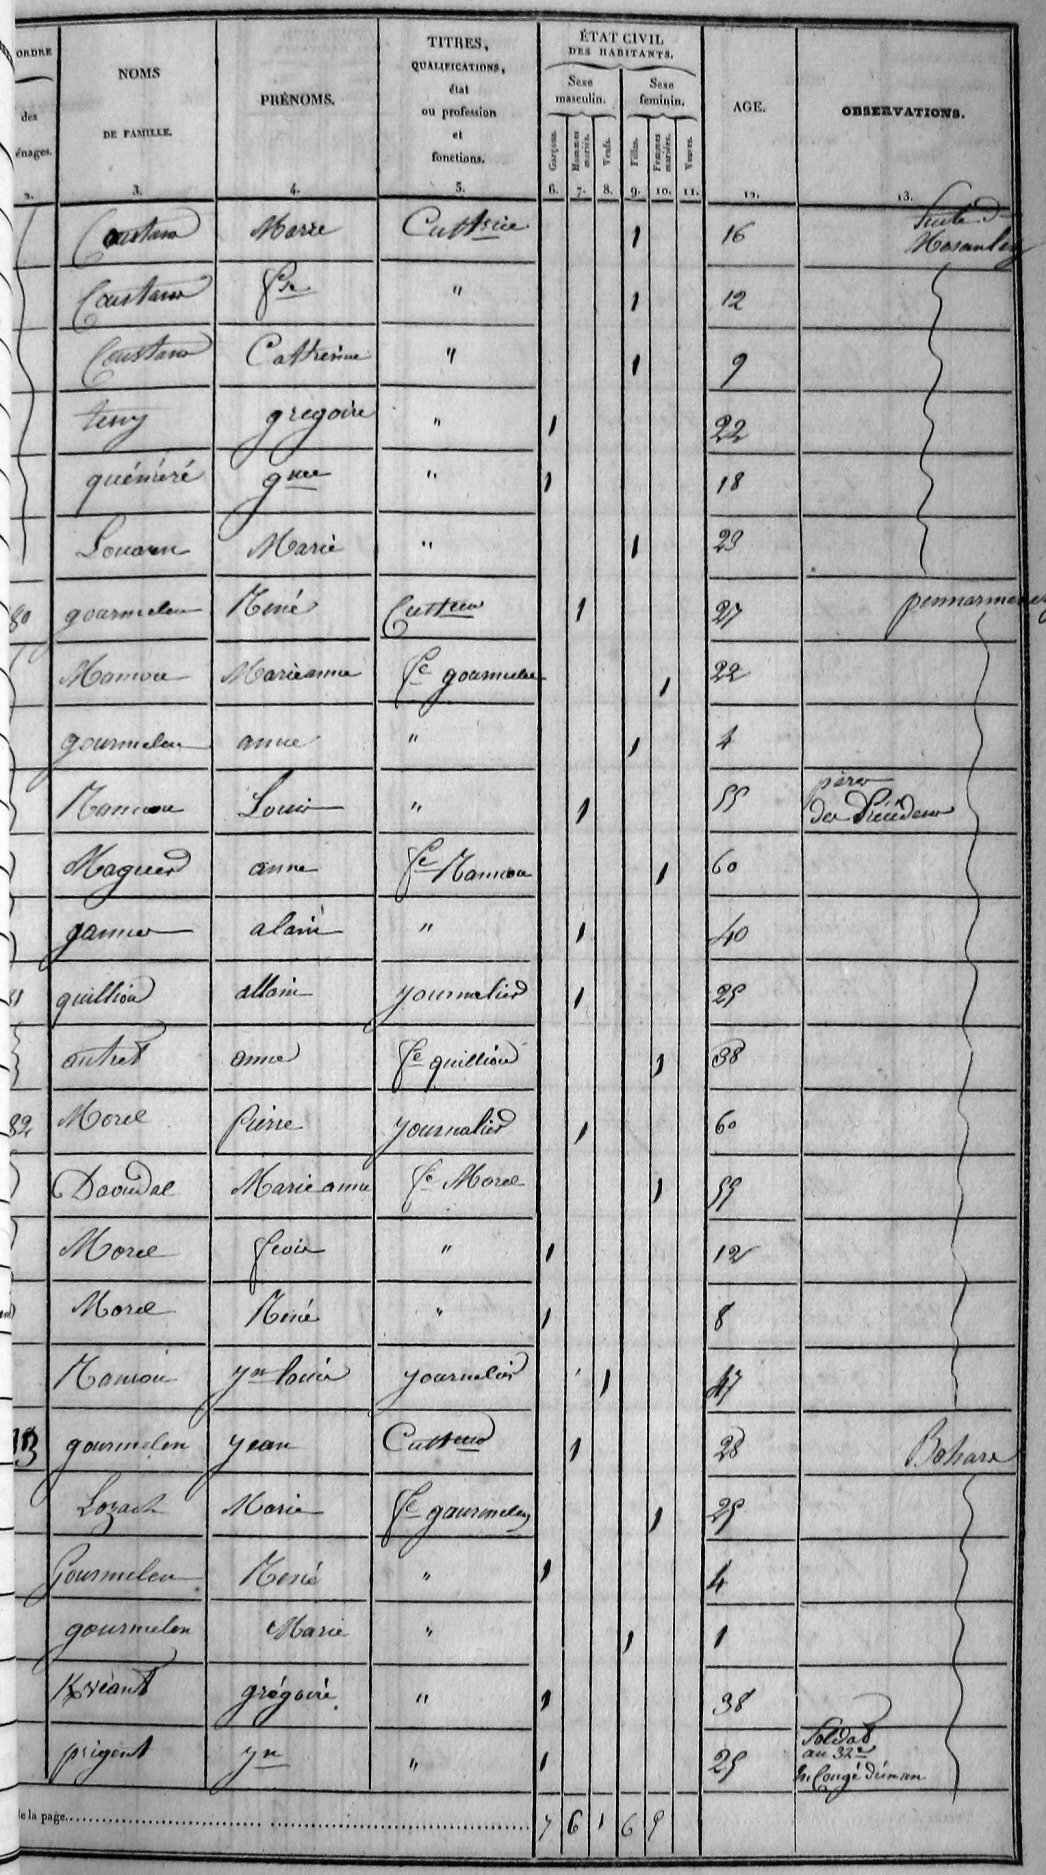 ORDRE
des
énages.
2.
NOMS
DE FAMILLE.
3.
PRÉNOMS.
4.
TITRES,
QUALIFICATIONS,
état
ou profession
et
fonctions.
5.
ÉTAT CIVIL
DES HABITANTS.
Sexe
masculin.
Sexe
feminin.
Garçons.
Hommes mariés.
Veufs.
Filles.
Femmes mariées.
Veuves.
6. 7. 8. 9. 10. 11.
AGE.
12.
OBSERVATIONS.
13.
Marie Cultrice 1 16 Suite d
Coustans " 1 12
Coustans Catherine " 1 9
gregoire " 1 22
quéméré gme " 1 18
Louarn Marie " 1 23
80 gourmelen René Culteur 1 27
Marianne fe gourmelen 1 22
gourmelen anne " 1 4
Louis " 1 55 père
Maguer anne fe 1 60
alain " 1 40
81 quilliou allain journalier 1 25
autret anne fe quilliou 1 38
82 Morel Pierre journalier 1 60
Daoudal Marie anne fe Morel 1 55
Morel " 1 12
Morel René " 1 8
yn louis journalier 1 47
gourmelen jean Culteur 1 28 Bohars
Lozach Marie fe gourmelen 1 25
Gourmelen René " 1 4
gourmelen Marie " 1 1
Kvéant grégoire " 1 38
prigent yn " 1 25 Soldat
au 32e
en Congé
de la page 7 6 1 6 5